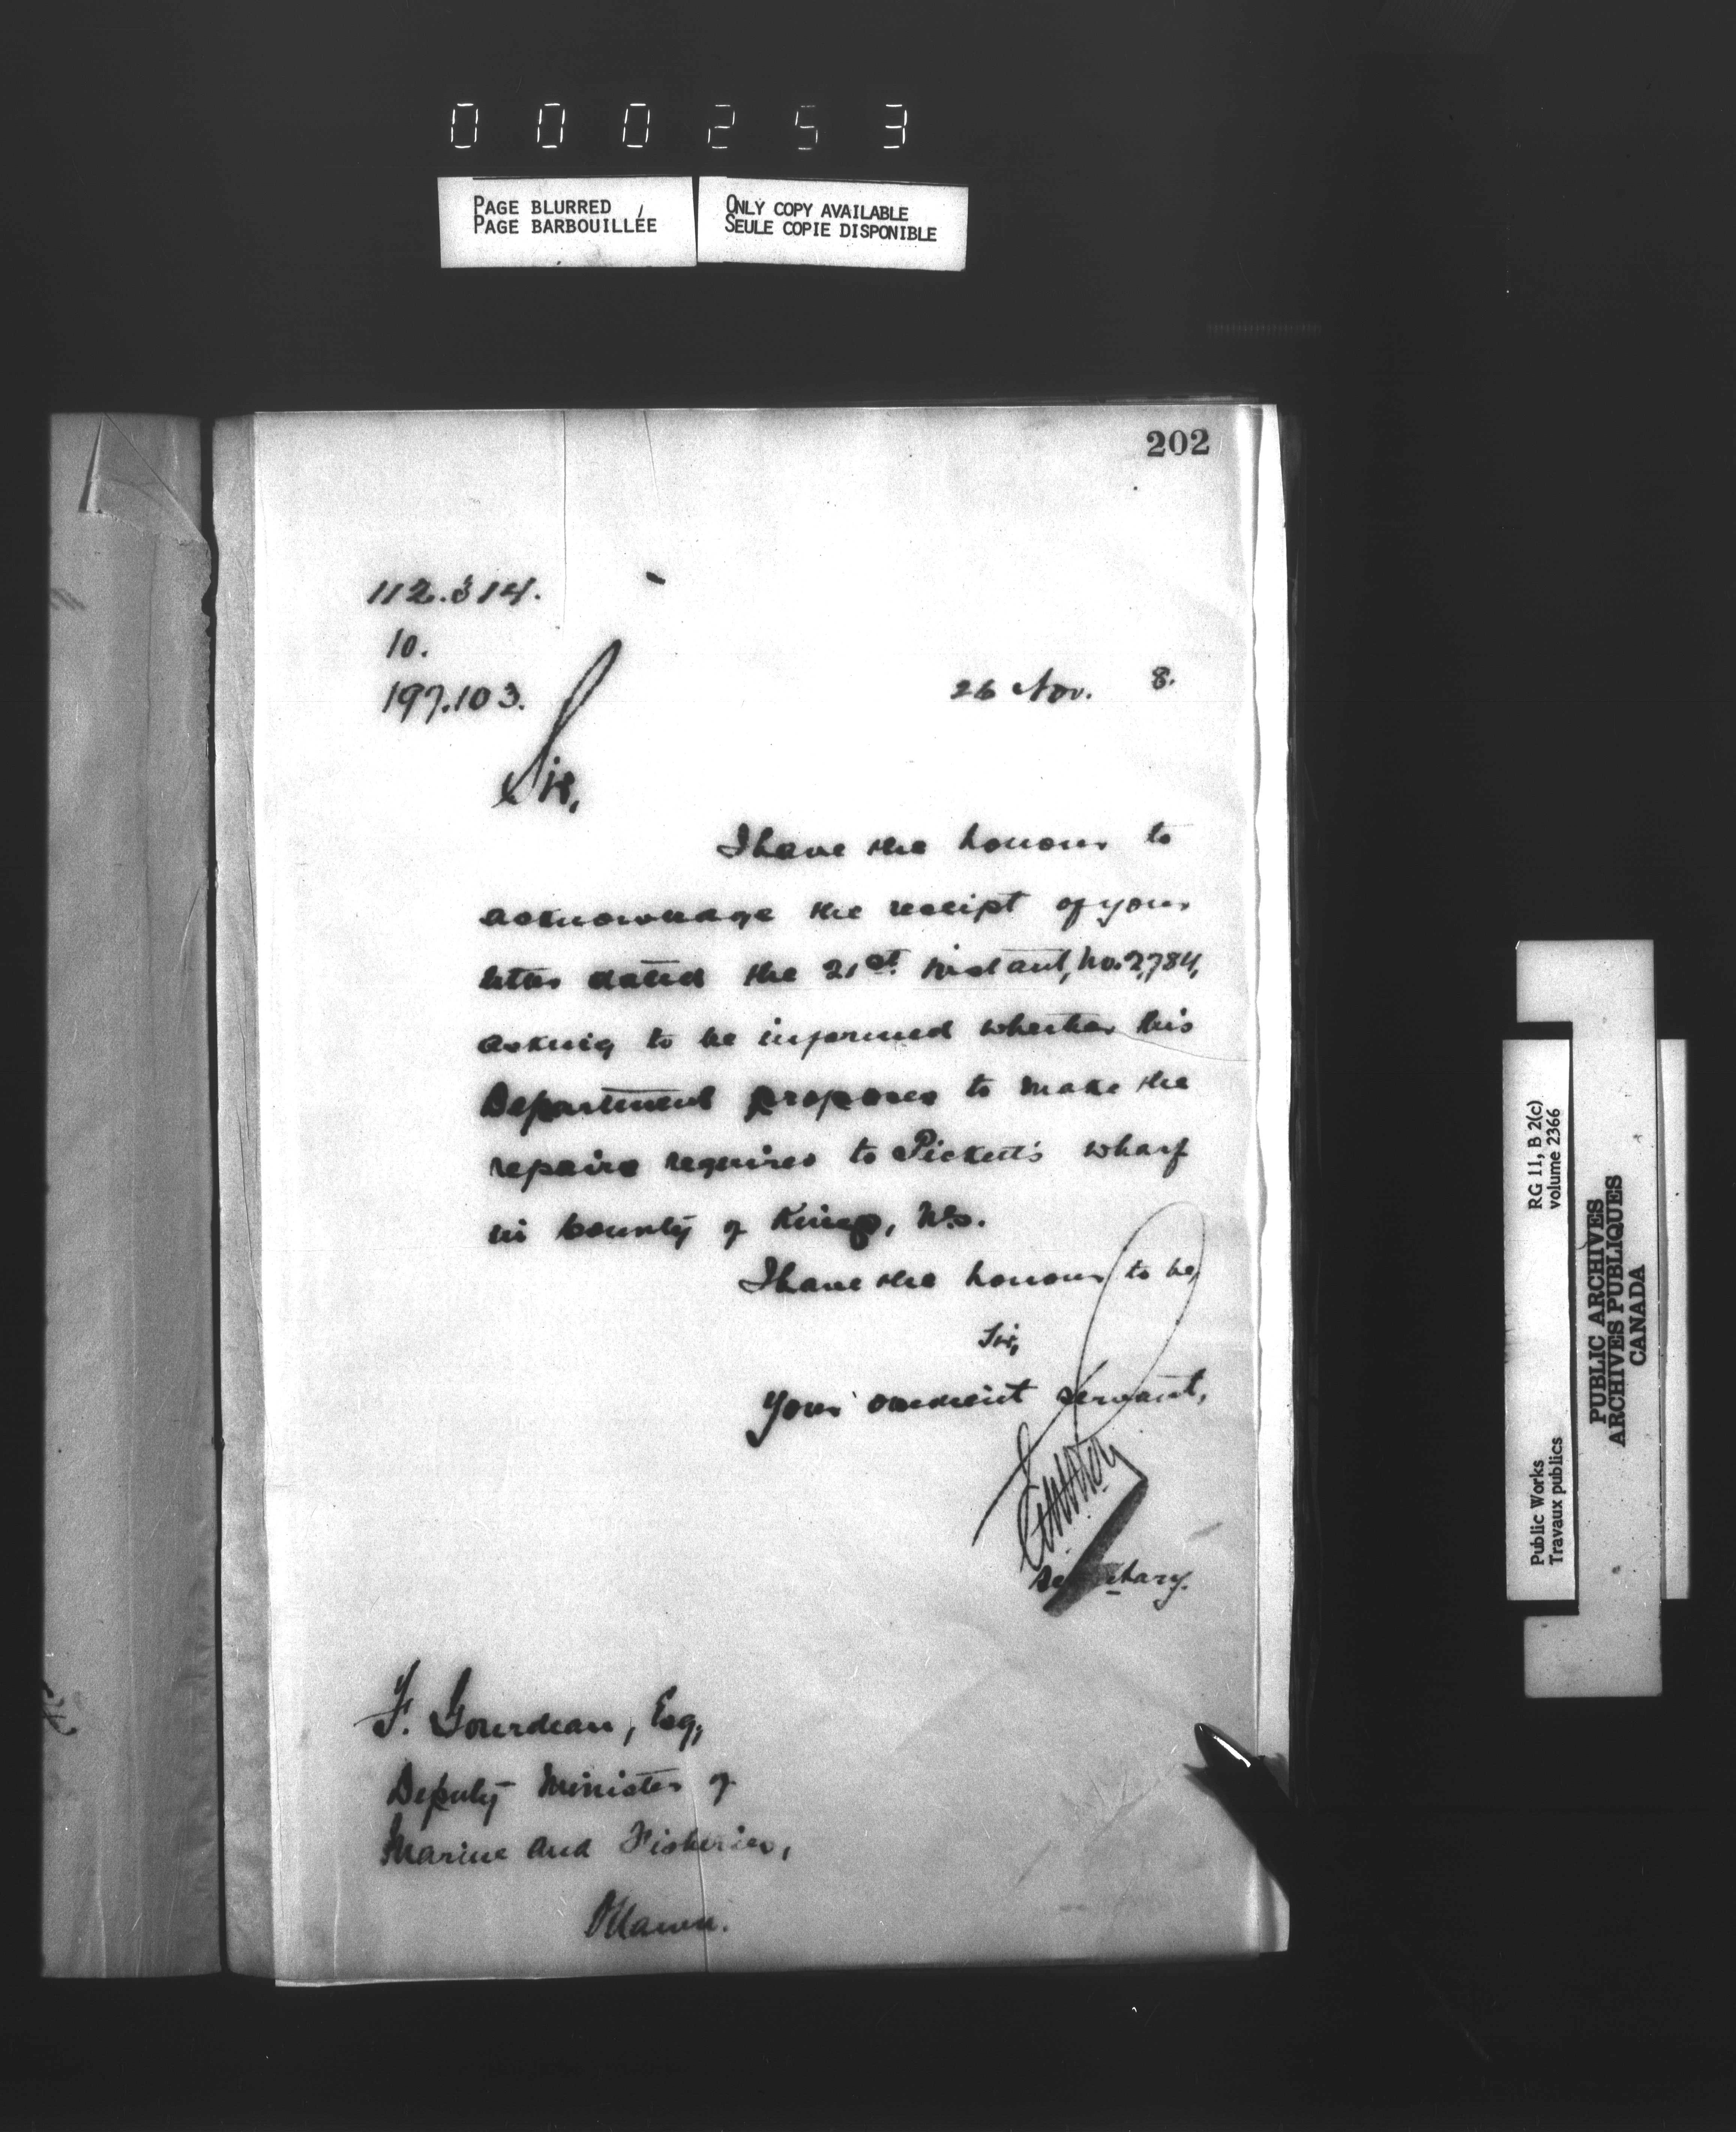 000253
PAGE BLURRED
PAGE BARBOUILLÉE
ONLY COPY AVAILABLE
SEULE COPIE DISPONIBLE
202
112.314.
10.
197.103.
26 Nov. 8.
Sir,
I have the honour to
acknowledge the receipt of your
letter dated the 21st instant, No. 2,784,
asking to be informed whether this
Department proposes to make the
repairs required to Pickett's wharf
in County of Kings, N.S.
I have the honour to be,
Sir,
Your obedient servant,
Secretary.
F. Gourdeau, Esq,
Deputy Minister of
Marine and Fisheries,
Ottawa.
RG 11, B 2(c)
volume 2366
Public Works
Travaux publics
PUBLIC ARCHIVES
ARCHIVES PUBLIQUES
CANADA